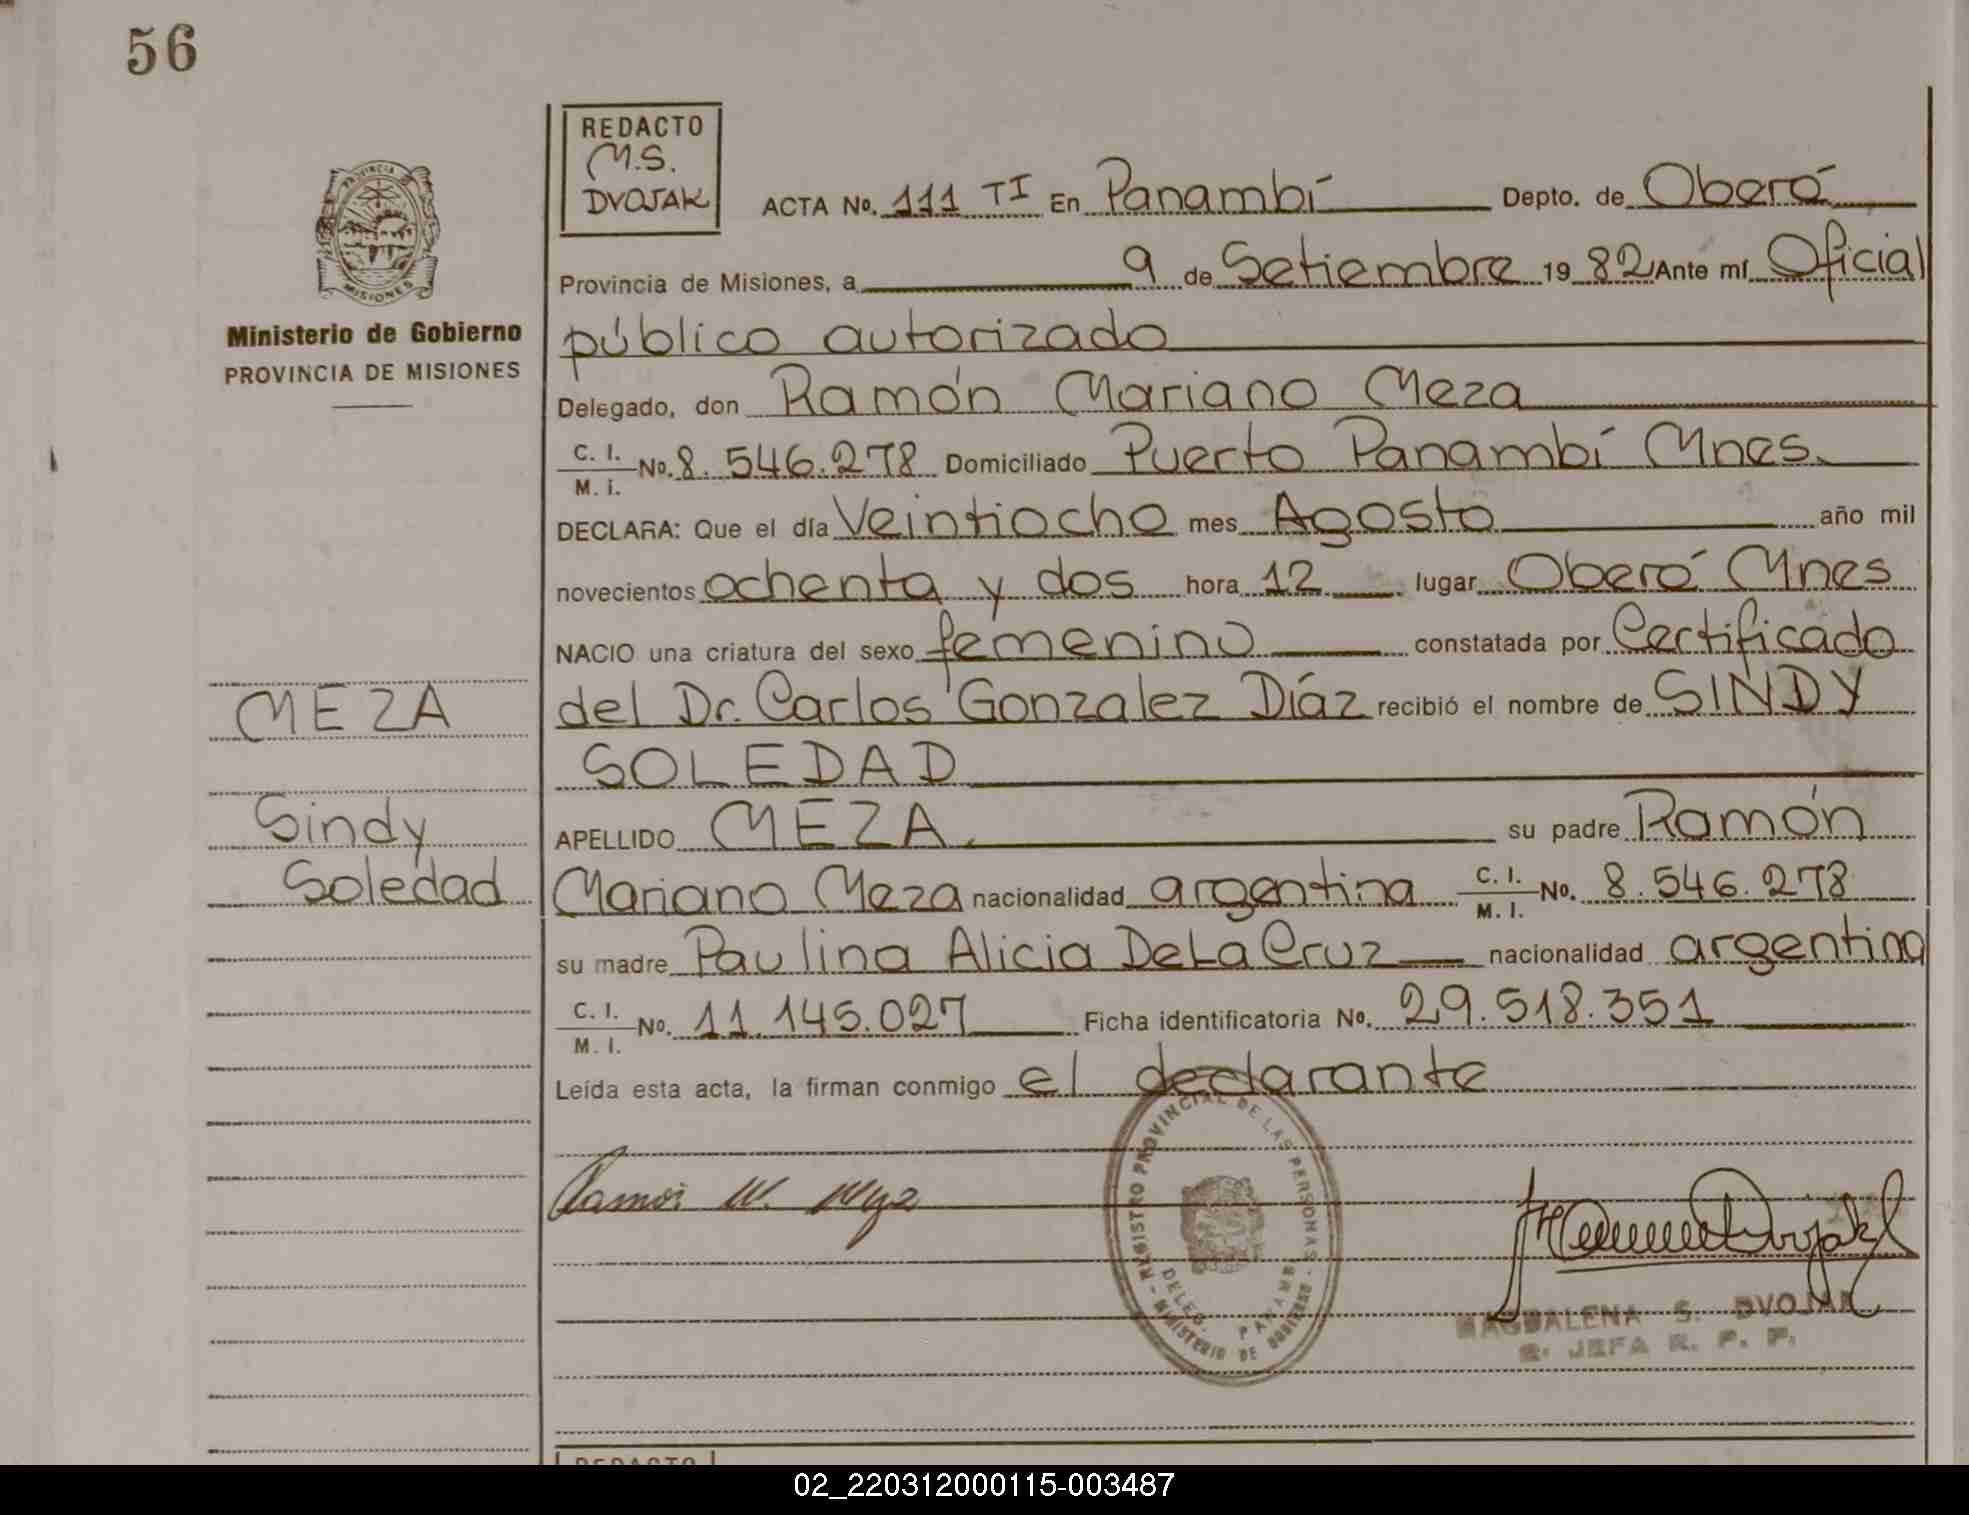 56
REDACTO
M.S.
DVOJAK
ACTA No. 111 TI En Panambí Depto. de Oberá
Provincia de Misiones, a 9 de Setiembre 19 82 Ante mí Oficial
público autorizado
Delegado, don Ramón Mariano Meza
C. I.
M. i. No. 8.546.278 Domiciliado Puerto Panambí Mnes.
DECLARA: Que el día Veintiocho mes Agosto año mil
novecientos ochenta y dos hora 12 lugar Oberá Mnes
NACIO una criatura del sexo femenino constatada por Certificado
del Dr. Carlos Gonzalez Díaz recibió el nombre de SINDY
SOLEDAD
APELLIDO MEZA su padre Ramón
Mariano Meza nacionalidad argentina C. I. M. I. No. 8.546.278
su madre Paulina Alicia De La Cruz nacionalidad argentina
C. I.
M. I. No. 11.145.027 Ficha identificatoria No. 29.518.351
Leída esta acta, la firman conmigo el declarante
PROVINCIA
MISIONES
Ministerio de Gobierno
PROVINCIA DE MISIONES
MEZA
Sindy
Soledad
Ramón M. Meza
REGISTRO PROVINCIAL DE LAS PERSONAS
MINISTERIO DE GOBIERNO
DELEG. PANAMBI
MAGDALENA S. DVOJAK
JEFA R. P. P.
REDACTO
02_220312000115-003487